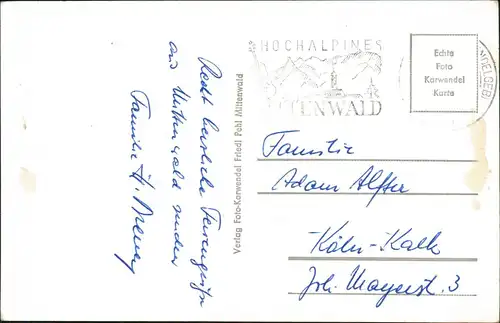 Recht herzliche Feriengrüße
aus Mittenwald senden
Familie H.
Verlag Foto-Karwendel Friedl Pahl Mittenwald
HOCHALPINES
TENWALD
Echte
Foto
Karwendel
Karte
Familie
Adam Alfter
Köln-Kalk
Joh. Mayerstr. 3